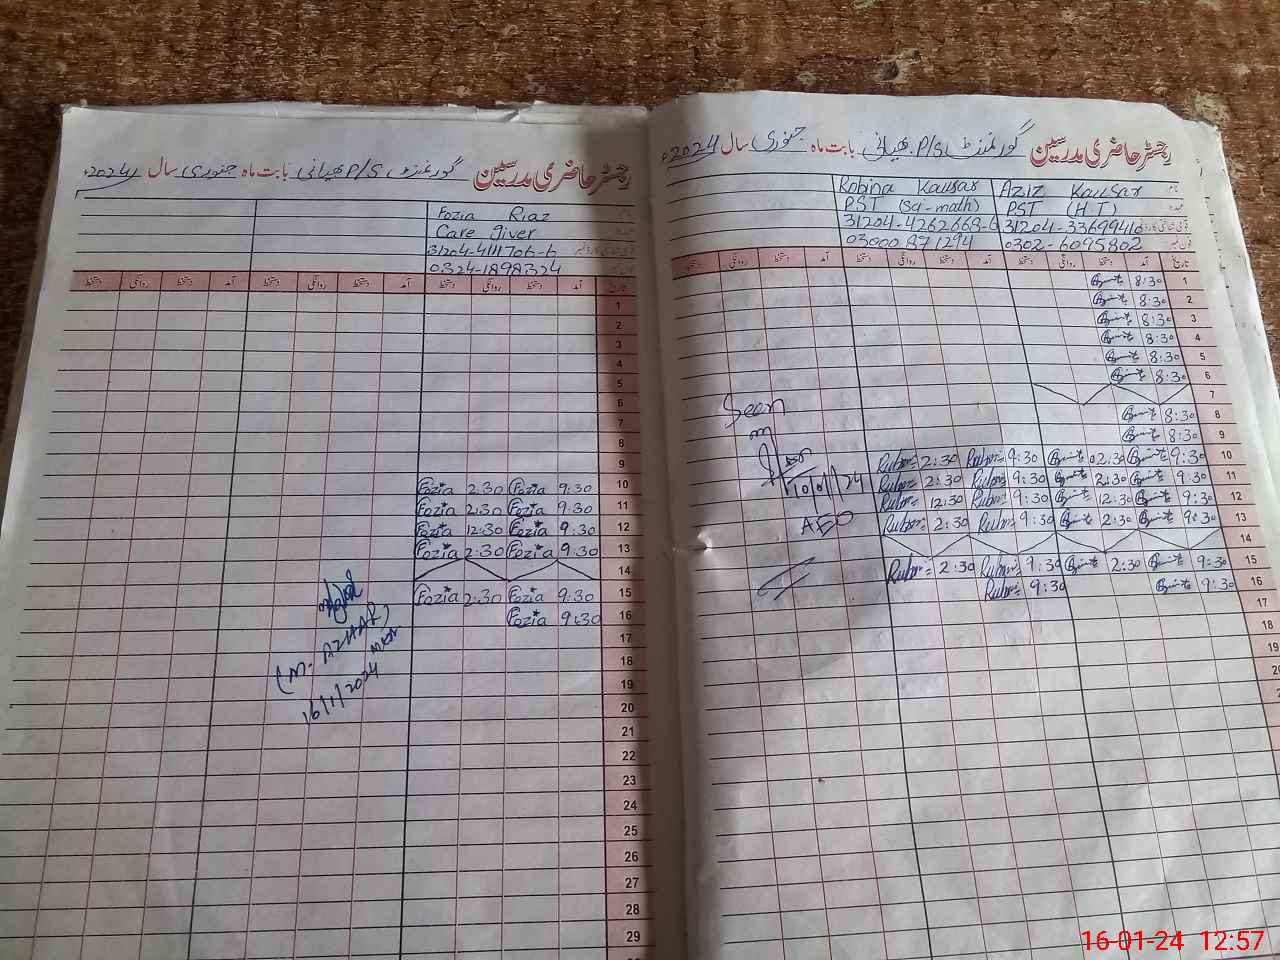 رجسٹر حاضری مدرسین گورنمنٹ P/S بھیانی بابت ماہ جنوری سال 2024ء
نام Fozia Riaz
عہدہ Care giver
قومی شناختی کارڈ نمبر 31204-4111706-6
فون نمبر 0324-1898324
تاریخ آمد دستخط روانگی دستخط آمد دستخط روانگی دستخط آمد دستخط روانگی دستخط
1
2
3
4
5
6
7
8
9
10 9:30 Fozia 2:30 Fozia
11 9:30 Fozia 2:30 Fozia
12 9:30 Fozia 12:30 Fozia
13 9:30 Fozia 2:30 Fozia
14
15 9:30 Fozia 2:30 Fozia
16 9:30 Fozia
17
18
19
20
21
22
23
24
25
26
27
28
29
(M. AZHAR)
16/1/2024
رجسٹر حاضری مدرسین گورنمنٹ P/S بھیانی بابت ماہ جنوری سال 2024ء
نام Aziz Kausar Robina Kausar
عہدہ PST (H.T) PST (Sci-math)
قومی شناختی کارڈ نمبر 31204-3369941 31204-4262668-6
فون نمبر 0302-6095802 03000871294
تاریخ آمد دستخط روانگی دستخط آمد دستخط روانگی دستخط آمد دستخط روانگی دستخط
1 8:30
2 8:30
3 8:30
4 8:30
5 8:30
6 8:30
7
8 8:30
9 8:30
10 9:30 02:30 9:30 2:30
11 9:30 2:30 9:30 2:30
12 9:30 12:30 9:30 12:30
13 9:30 2:30 9:30 2:30
14
15 9:30 2:30 9:30 2:30
16 9:30 9:30
17
18
19
20
Seen
10/01/24
AEO
16-01-24 12:57